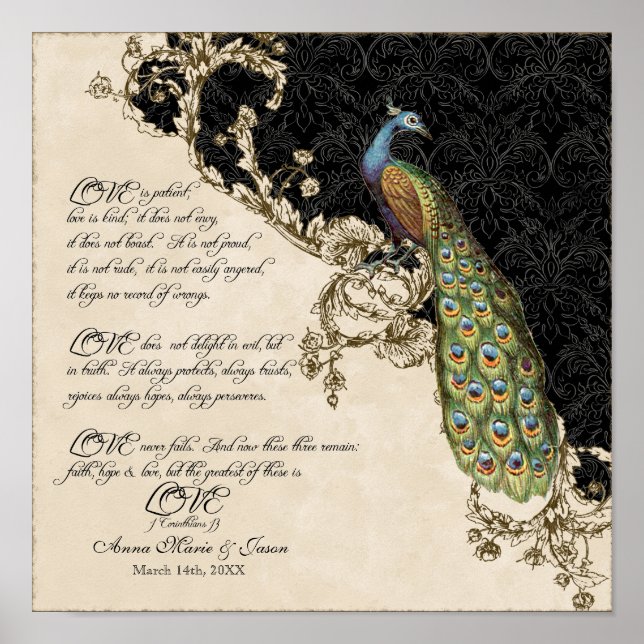 LOVE is patient;
love is kind; it does not envy,
it does not boast. It is not proud,
it is not rude, it is not easily angered,
it keeps no record of wrongs.
LOVE does not delight in evil, but
in truth. It always protects, always trusts,
rejoices always hopes, always perseveres.
LOVE never fails. And now these three remain:
faith, hope & love, but the greatest of these is
LOVE
1 Corinthians 13
Anna Marie & Jason
March 14th, 20XX